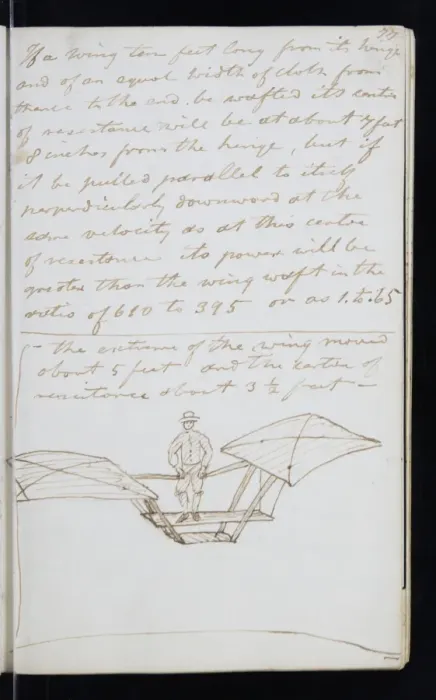 If a wing ten feet long from its hinge
and of an equal width of cloth from
thence to the end. be wafted its centre
of resistance will be at about 7 feet
8 inches from the hinge, but if
it be pulled parallel to itself
perpendicularly downward at the
same velocity as at this centre
of resistance its power will be
greater than the wing waft in the
ratio of 610 to 395 or as 1. to .65
– the extreme of the wing moved
about 5 feet and the centre of
resistance about 3 ½ feet –